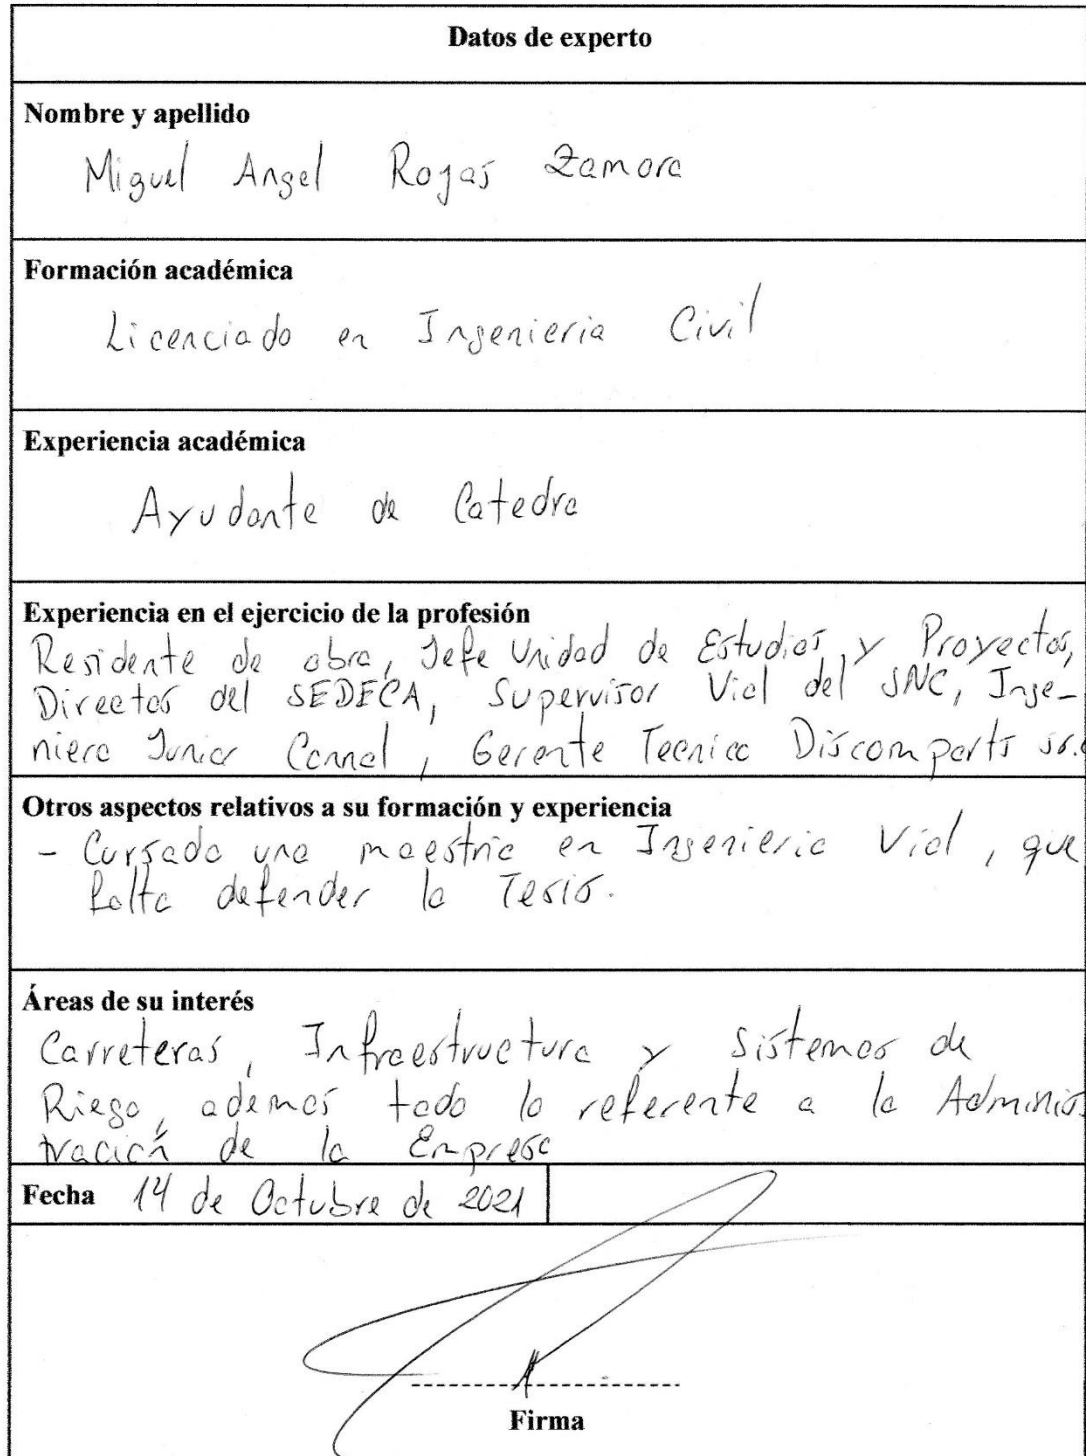 Datos de experto
Nombre y apellido
Miguel Angel Rojas Zamora
Formación académica
Licenciado en Ingenieria Civil
Experiencia académica
Ayudante de Catedra
Experiencia en el ejercicio de la profesión
Residente de obra, Jefe Unidad de Estudios y Proyectos,
Director del SEDECA, Supervisor Vial del SNC, Inge-
niero Junior Connal, Gerente Tecnico Discomparts
Otros aspectos relativos a su formación y experiencia
- Cursado una maestria en Ingenieria Vial, que
falta defender la Tesis.
Áreas de su interés
Carreteras, Infraestructura y Sistemas de
Riego, ademas todo lo referente a la Adminis
tración de la Empresa
Fecha 14 de Octubre de 2021
Firma